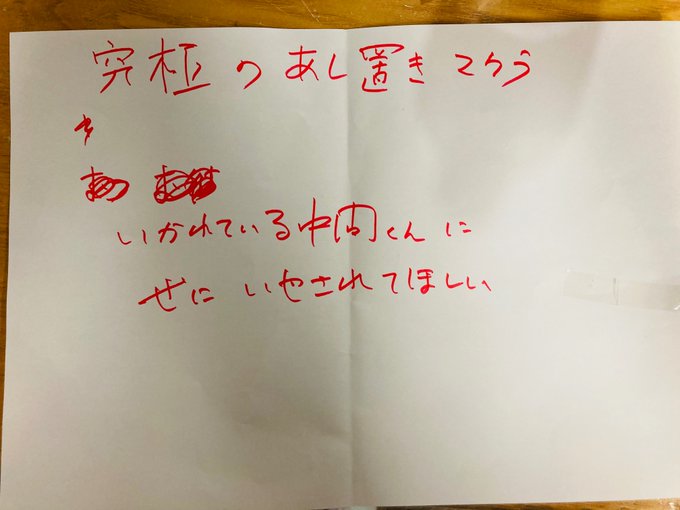 究極のあし置きマクラ
いかれている中間くんに
ぜに いやされてほしい